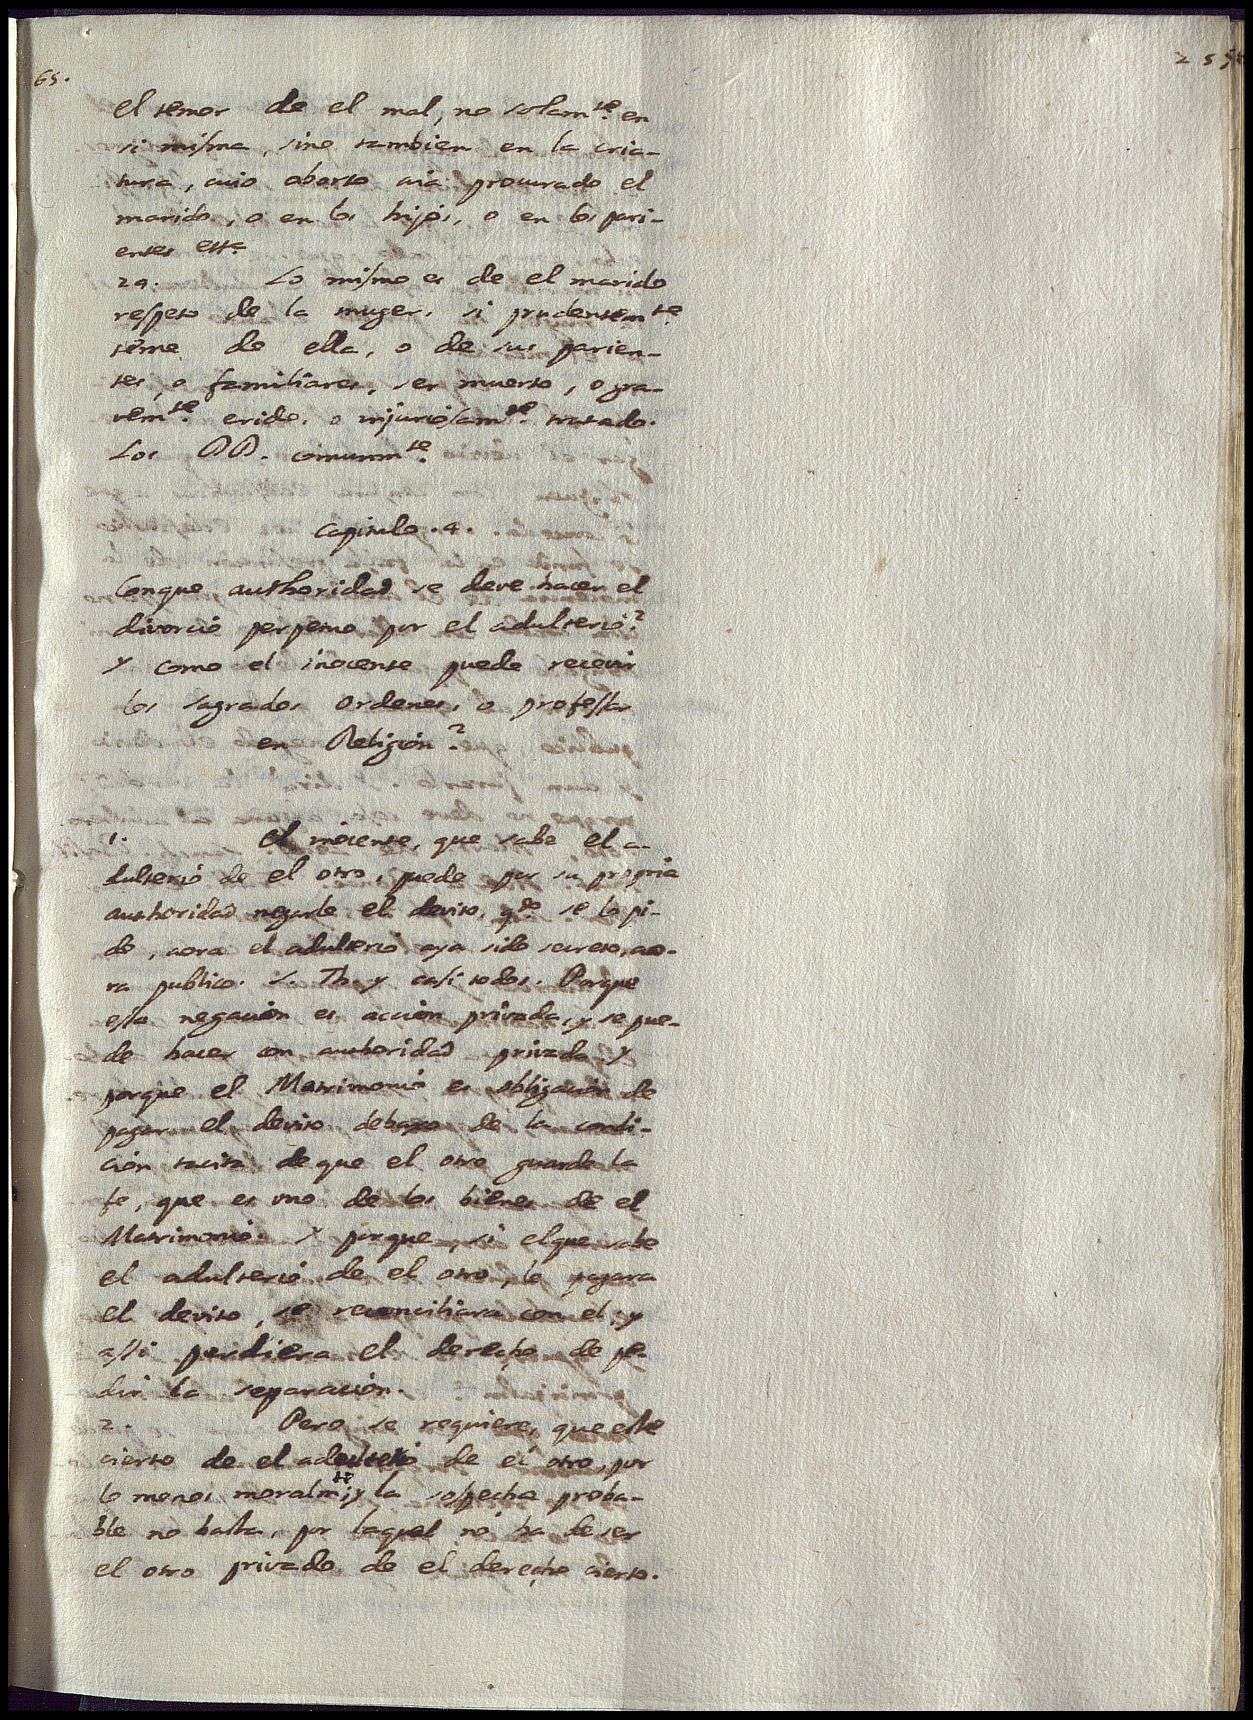 65.
el temor de el mal, no solamte. en
si misma, sino tambien en la cria-
tura, cuio aborto aia procurado el
marido, o en los hijos, o en los pari-
entes etta.
29. Lo mismo es de el marido
respeto de la muger, si prudentemte
teme de ella, o de sus parien-
tes, o familiares, ser muerto, o gra-
vemte. erido, o injuriosamte. tratado.
Los DD. comunmte.
Capitulo. 4.
Conque authoridad se deve hacer el
divorcio perpetuo por el adulterio?
y como el inocente puede recevir
los sagrados ordenes, o professar
en Religion?
1. El inocente, que sabe el a-
dulterio de el otro, puede por su propria
authoridad negarle el devito, qdo. se lo pi-
de, aora el adulterio aya sido secreto, ao-
ra publico. S. Th. y casi todos. Porque
esta negacion es accion privada, y se pue-
de hacer con authoridad privada. y
porque el Matrimonio es obligacion de
pagar el devito debaxo de la condi-
cion tacita de que el otro guarde la
fe, que es uno de los bienes de el
Matrimonio. Y porque, si el que sabe
el adulterio de el otro, le pagara
el devito, se reconciliara con el, y
assi perdiera el derecho de pe-
dir la separacion.
2. Pero se requiere, que este
cierto de el adulterio de el otro, por
lo menos moralmte; y la sospecha proba-
ble no basta, por laqual no ha de ser
el otro privado de el derecho cierto.